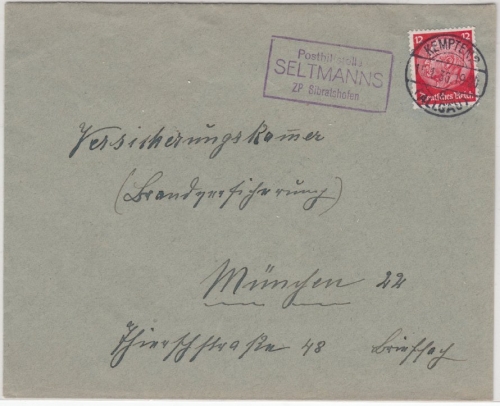 Posthilfstelle
SELTMANNS
ZP. Sibratshofen
12 12
KEMPTEN
(ALLGÄU)
Deutsches Reich
Versicherungskammer
(Brandversicherung)
München 22
Thierschstraße 48 Brieffach